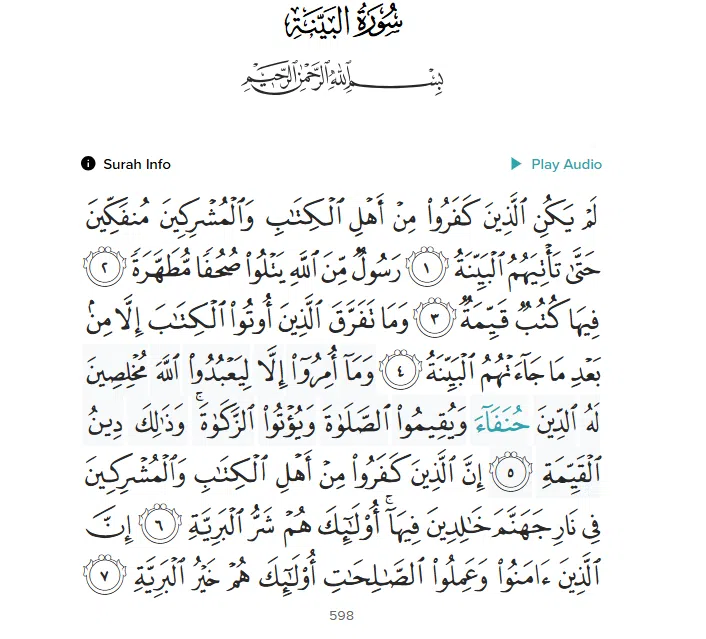 سُورَةُ البَيِّنَةِ
بِسْمِ ٱللَّهِ ٱلرَّحْمَٰنِ ٱلرَّحِيمِ
Surah Info
Play Audio
لَمْ يَكُنِ ٱلَّذِينَ كَفَرُوا۟ مِنْ أَهْلِ ٱلْكِتَـٰبِ وَٱلْمُشْرِكِينَ مُنفَكِّينَ
حَتَّىٰ تَأْتِيَهُمُ ٱلْبَيِّنَةُ ١ رَسُولٌ مِّنَ ٱللَّهِ يَتْلُوا۟ صُحُفًا مُّطَهَّرَةً ٢
فِيهَا كُتُبٌ قَيِّمَةٌ ٣ وَمَا تَفَرَّقَ ٱلَّذِينَ أُوتُوا۟ ٱلْكِتَـٰبَ إِلَّا مِنۢ
بَعْدِ مَا جَآءَتْهُمُ ٱلْبَيِّنَةُ ٤ وَمَآ أُمِرُوٓا۟ إِلَّا لِيَعْبُدُوا۟ ٱللَّهَ مُخْلِصِينَ
لَهُ ٱلدِّينَ حُنَفَآءَ وَيُقِيمُوا۟ ٱلصَّلَوٰةَ وَيُؤْتُوا۟ ٱلزَّكَوٰةَ ۚ وَذَٰلِكَ دِينُ
ٱلْقَيِّمَةِ ٥ إِنَّ ٱلَّذِينَ كَفَرُوا۟ مِنْ أَهْلِ ٱلْكِتَـٰبِ وَٱلْمُشْرِكِينَ
فِى نَارِ جَهَنَّمَ خَـٰلِدِينَ فِيهَآ ۚ أُو۟لَـٰٓئِكَ هُمْ شَرُّ ٱلْبَرِيَّةِ ٦ إِنَّ
ٱلَّذِينَ ءَامَنُوا۟ وَعَمِلُوا۟ ٱلصَّـٰلِحَـٰتِ أُو۟لَـٰٓئِكَ هُمْ خَيْرُ ٱلْبَرِيَّةِ ٧
598